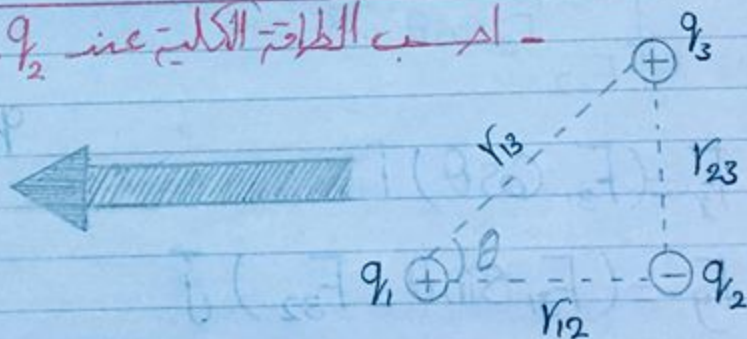 - احسب الطاقة الكلية عند q₂
q₃
r₁₃
r₂₃
θ
q₁ + - q₂
r₁₂